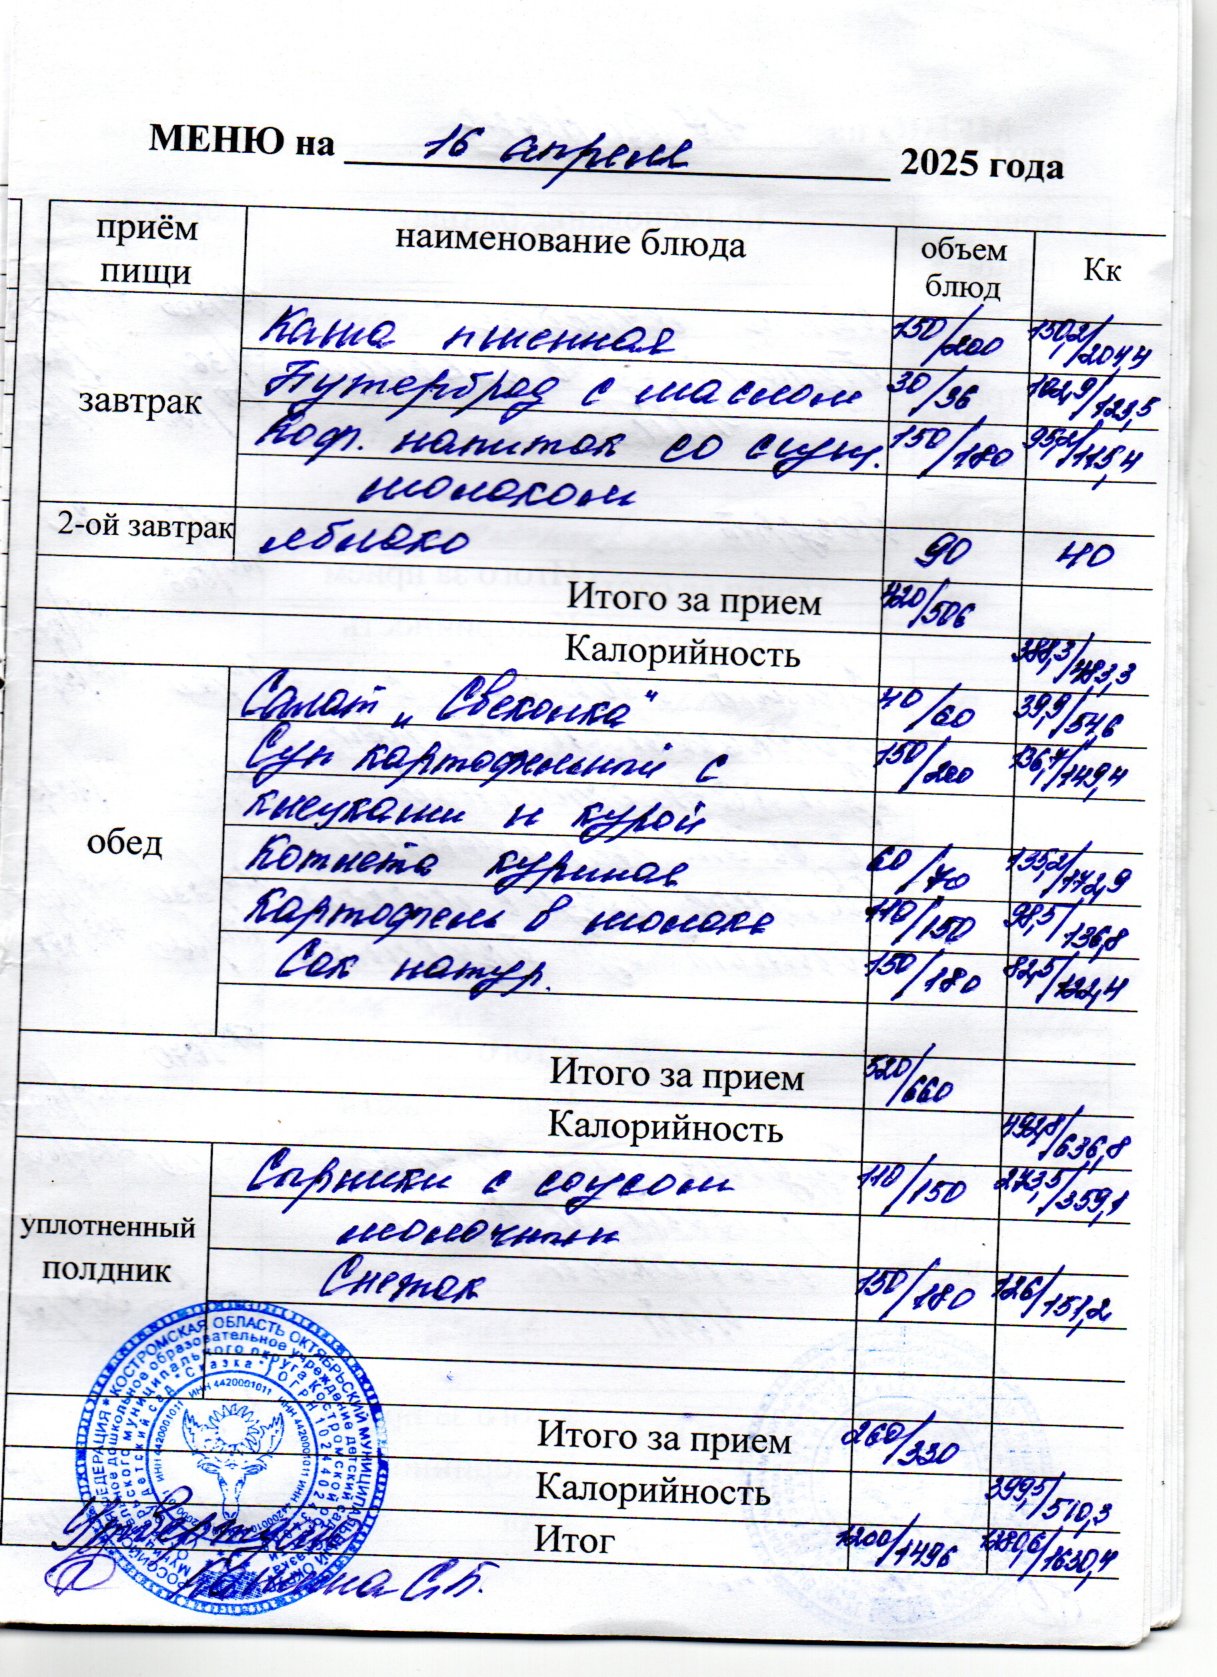 МЕНЮ на 16 апреля 2025 года
приём пищи наименование блюда объем блюд Кк
завтрак
Каша пшенная 150/200 150,2/204,4
Бутерброд с маслом 30/36 102,9/123,5
Коф. напиток со сгущ. 150/180 95,2/115,4
молоком
2-ой завтрак яблоко 90 40
Итого за прием 420/506
Калорийность 388,3/483,3
обед
Салат „Свеколка" 40/60 39,9/54,6
Суп картофельный с 150/200 136,7/149,4
клецками и курой
Котлета куриная 60/70 135,2/172,9
Картофель в молоке 110/150 98,5/136,8
Сок натур. 150/180 82,5/122,4
Итого за прием 520/660
Калорийность 492,8/636,8
уплотненный полдник
Сырники с соусом 110/150 273,5/359,1
молочным
Снежок 150/180 126/151,2
Итого за прием 260/330
Калорийность 399,5/510,3
Итог 1200/1496 1280,6/1630,4
КОСТРОМСКАЯ ОБЛАСТЬ ОКТЯБРЬСКИЙ МУНИЦИПАЛЬНЫЙ
дошкольное образовательное учреждение детский сад
муниципального округа Костромской
детский сад "Сказка"
ИНН 4420001011 ИНН 4420001011
С.Б.